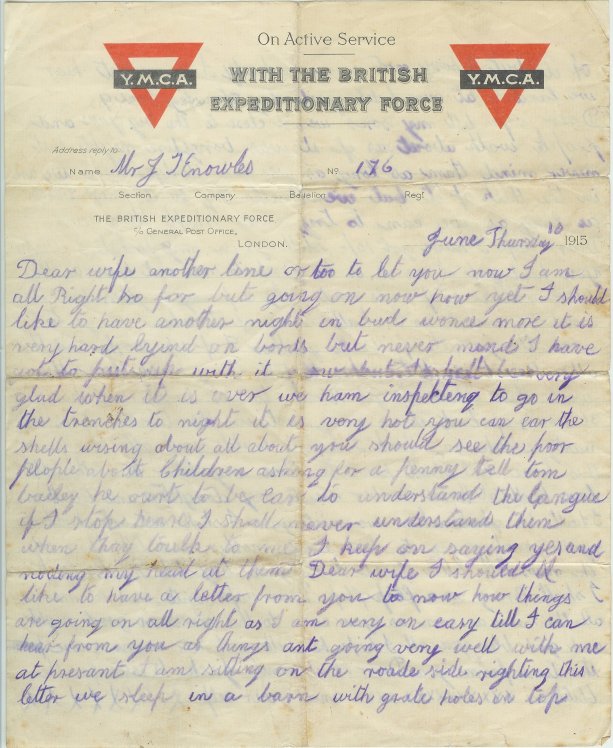 On Active Service
WITH THE BRITISH
EXPEDITIONARY FORCE
Y.M.C.A.
Y.M.C.A.
Address reply to
Name Mr J T Knowles No 176
Section Company Battalion Regt
THE BRITISH EXPEDITIONARY FORCE
c/o GENERAL POST OFFICE,
LONDON.
June Thursday 10 1915
Dear wife another line or too to let you now I am
all Right so far but going on now how yet I should
like to have another night in bed wonce more it is
very hard lyind on bords but never mend I have
got to put up with it now but I shall be very
glad when it is over we ham inspecteng to go in
the trenches to night it is very hot you can ear the
shells wising about all about you should see the poor
people about Children asking for a penny tell tom
bailey he ourt to be ear to understand the langue
if I stop I shall never understand them
when thay toulk to me I keep on saying yes and
noding my head at them Dear wife I should
like to have a letter from you to now how things
are going on all right as I am very on easy till I can
hear from you as things ant going very well with me
at presant I am sitting on the roade side righting this
letter we sleep in a barn with grate holes in top